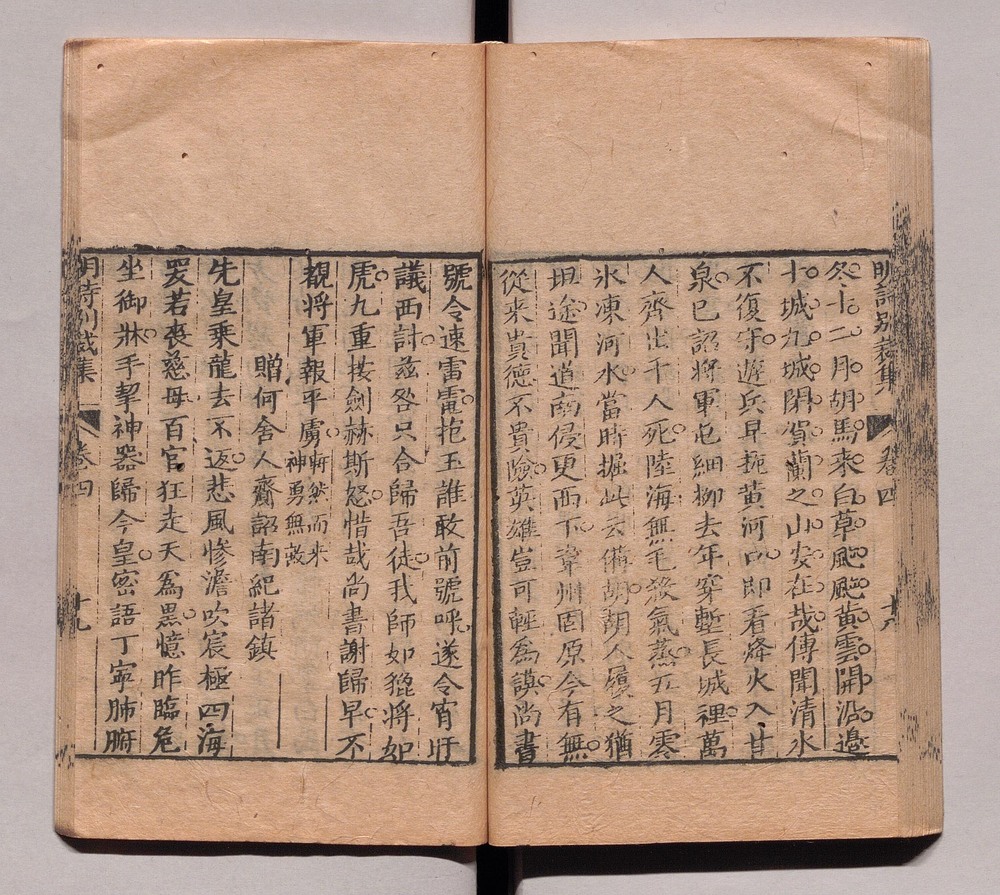 明詩別裁集 卷四 十八
冬十二月胡馬来白草颼颼黃雲開沿邊
十城九城閉賀蘭之山安在哉傳聞清水
不復守遊兵早扼黃河口即看烽火入甘
泉已詔將軍屯細柳去年穿塹長城裡萬
人齊出千人死陸海無毛殺氣蒸五月零
氷凍河水當時掘此云備胡胡人履之猶
坦途聞道南侵更西下韋州固原今有無
從来貴德不貴險英雄豈可輕為謨尚書
號令速雷電抱玉誰敢前號呼遂令宵旰
議西討茲咎只合歸吾徒我師如貔將如
虎九重按劍赫斯怒惜哉尚書謝歸早不
覩將軍報平虜將然而来神勇無敵
贈何舍人齎詔南紀諸鎮
先皇乘龍去不返悲風慘澹吹宸極四海
哭若喪慈母百官狂走天為黒憶昨臨危
坐御牀手挈神器歸今皇密語丁寧肺腑
明詩別裁集 卷四 十九